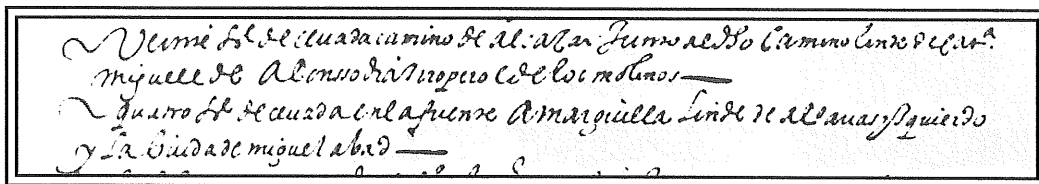 Veinte fs de cevada camino de alcazar Junto al dho Camino linde de
miguel de Alonsso diaz ropero e de los molinos
quatro fs de cevada en la fuente Amarguilla linde de yzquierdo
y la biuda de miguel abad